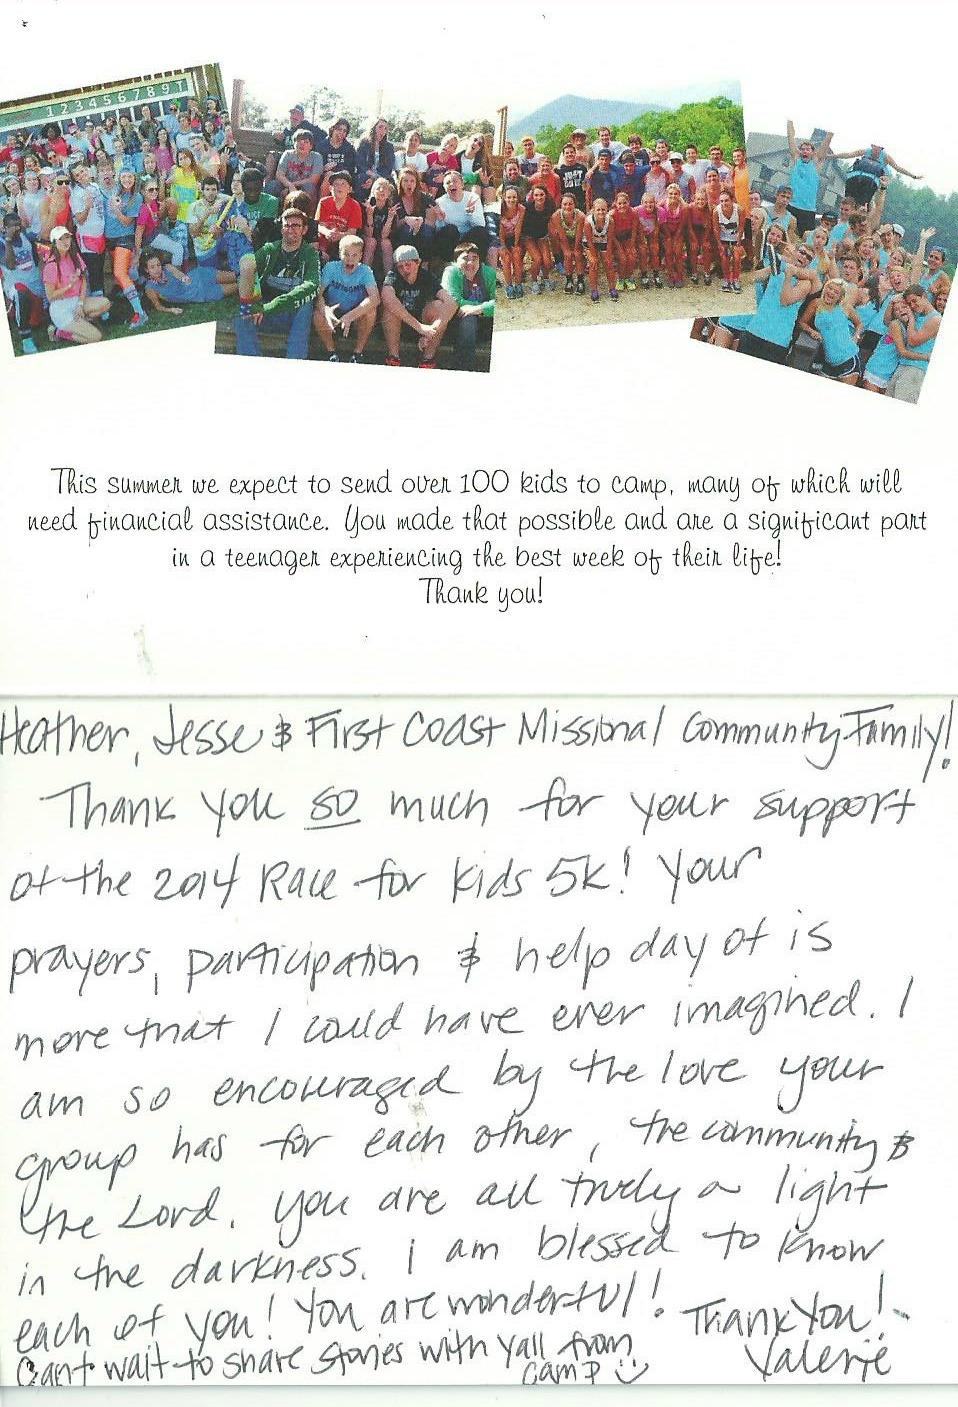 1 2 3 4 5 6 7 8 9 T
JUST
This summer we expect to send over 100 kids to camp, many of which will
need financial assistance. You made that possible and are a significant part
in a teenager experiencing the best week of their life!
Thank you!
Heather, Jesse & First Coast Missional Community Family!
Thank you so much for your support
of the 2014 Race for Kids 5k! Your
prayers, participation & help day of is
more that I could have ever imagined. I
am so encouraged by the love your
group has for each other, the community &
the Lord. You are all truly a light
in the darkness. I am blessed to know
each of you! You are wonderful! Thank You! -
Cant wait to share stories with yall from
camp Valerie